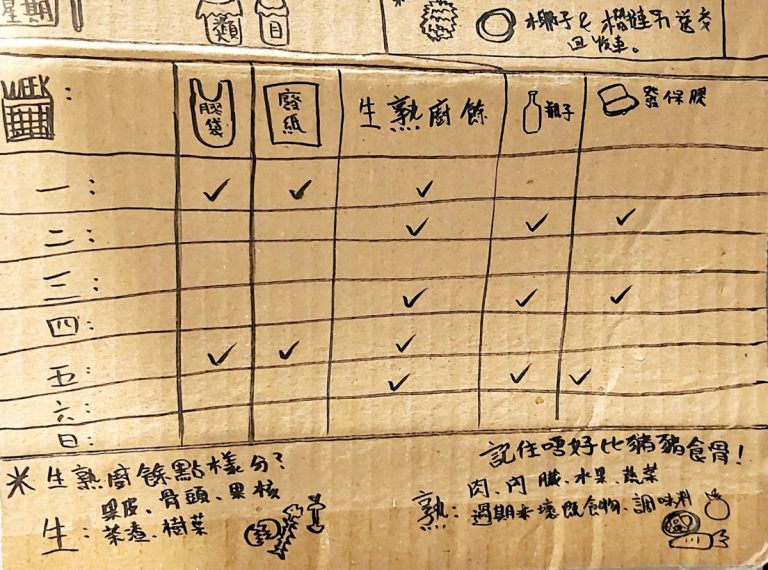 星期
類 目
椰子 & 榴槤不送交
回收車。
WEEK : 膠袋 廢紙 生熟廚餘 瓶子 發保膠
一： ✓ ✓ ✓
二： ✓ ✓ ✓
三： ✓ ✓ ✓
四： ✓ ✓ ✓
五： ✓ ✓ ✓
六：
日：
記住唔好比豬豬食骨！
* 生熟廚餘點樣分？
生： 果皮、骨頭、果核
茶渣、樹葉
熟： 肉、內臟、水果、蔬菜
過期未壞既食物、調味料